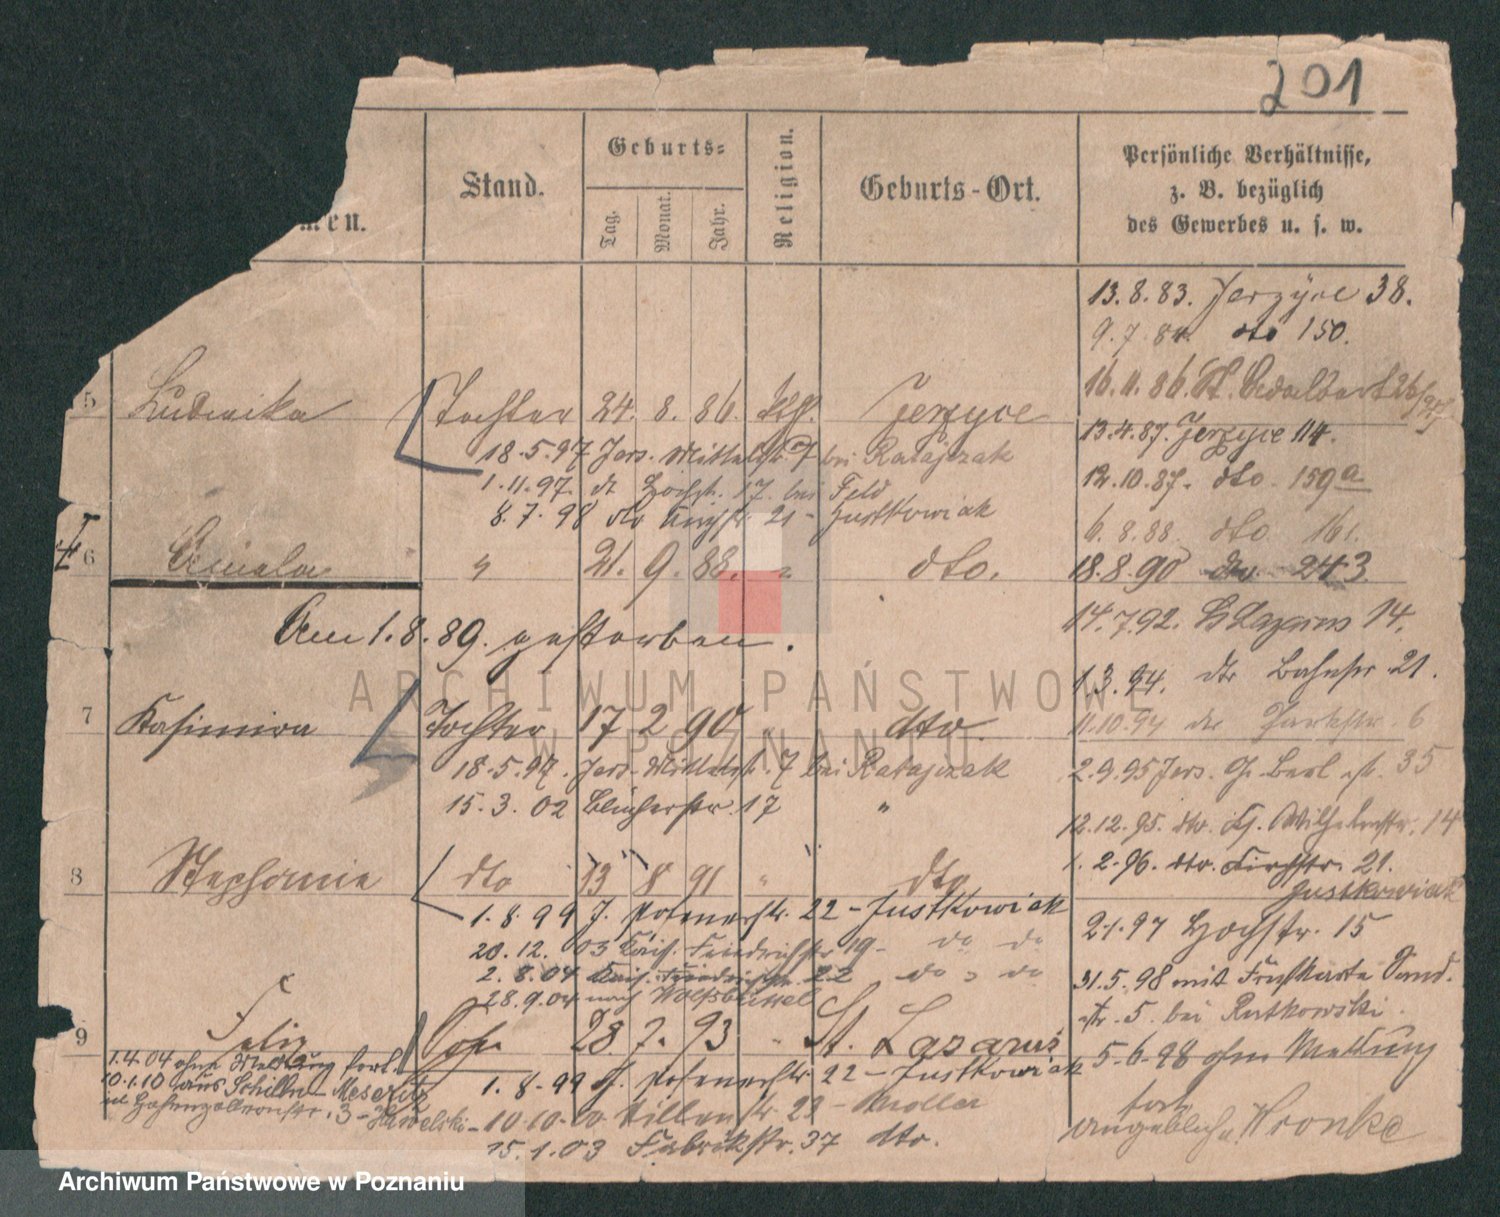 201
men.
Stand.
Geburts-
Tag.
Monat.
Jahr.
Religion.
Geburts-Ort.
Persönliche Verhältnisse,
z. B. bezüglich
des Gewerbes u. s. w.
13.8.83. Jerzyce 38.
9.7.84. dto 150.
16.11.86. St. Adalbert
5 Ludwika Tochter 24. 8. 86. Jerzyce
13.4.87. Jerzyce 114.
18.5.97 Jers. Mittelstr. 7 bei Ratajczak
12.10.87. dto. 159a
1.11.97. dt Hochstr. 17. bei Feld
8.7.98 dto Kirchstr 21 - Justkowiak
6.8.88. dto 161.
6 Amiela " 21. 9. 88. " dto.
18.8.90 dto. 243
Am 1.8.89. gestorben.
14.7.92. St Lazarus 14.
1.3.94. dto Bahnstr. 21.
7 Kasimira Tochter 17 2 90 " dto.
11.10.94 dto Parkstr. 6
18.5.97. Jers. Mittelstr. 7 bei Ratajczak
2.9.95 Jers. Gr. Berl. str. 35
15.3.02 Blücherstr. 17 "
12.12.95. dto. Wilhelmstr. 14
8 Stephanie dto 13 8 91 " dto
1.2.96. dto. Kirchstr. 21.
Justkowiak
1.8.99 J. Posenerstr. 22 - Justkowiak
2.1.97 Hochstr. 15
20.12.03 Kais. Friedrichstr 19 - do do
2.8.04 Kais. Friedrichstr 22 do " do
31.5.98 mit Sand.
28.9.04 nach Wolfsbüttel
str. 5. bei Rutkowski.
9 Felix Sohn 28. 7. 93 " St. Lazarus
1.4.04 ohne Meldung fort.
5.6.98 ohne Meldung
fort
10.1.10 aus Schilln - Meseritz
1.8.99 J. Posenerstr 22 - Justkowiak
Hohenzollernstr. 3 - Hawelski -
10.10.00 Villenstr 22 - Moller
angeblich n. Wronke
15.1.03 Fabrikstr. 37 dto.
ARCHIWUM PAŃSTWOWE
W POZNANIU
Archiwum Państwowe w Poznaniu